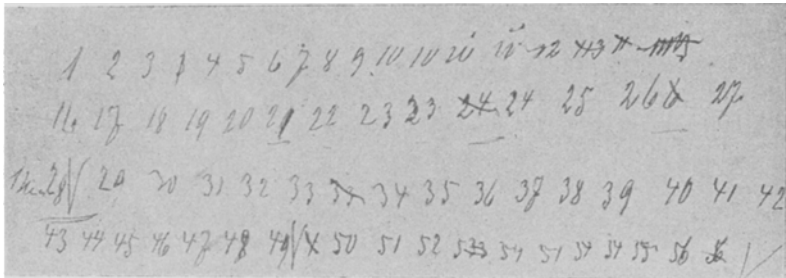 1 2 3 4 5 6 7 8 9 10 10 10 10 12
16 17 18 19 20 21 22 23 23 24 24 25 26 27
28 29 30 31 32 33 34 35 36 37 38 39 40 41 42
43 44 45 46 47 48 49 50 51 52 53 54 51 54 54 55 56 56